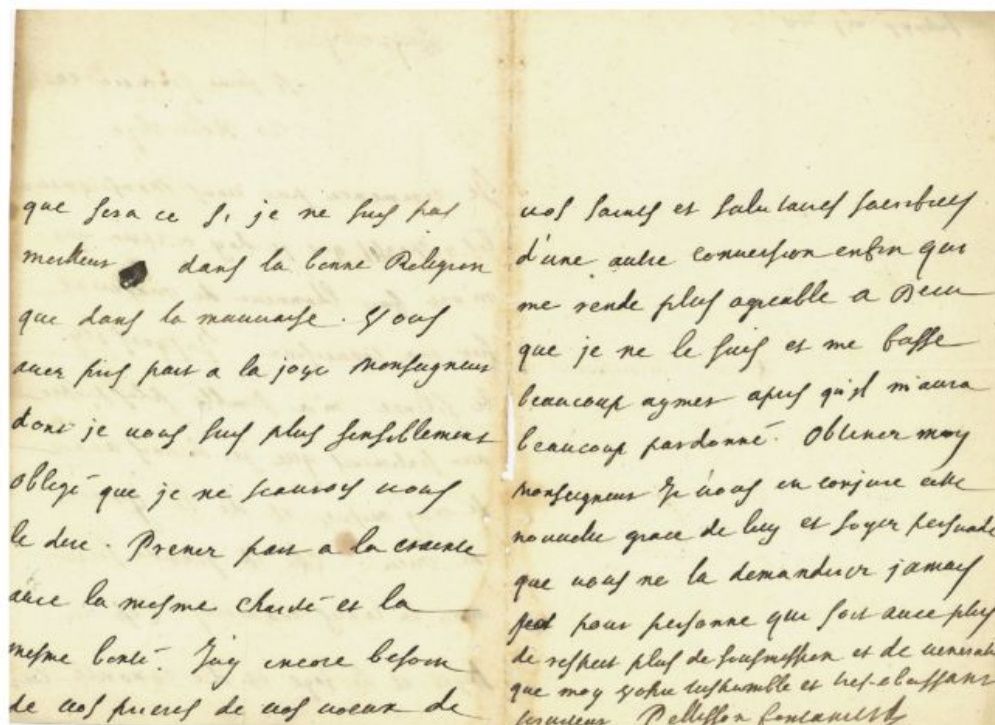 que sera ce si je ne suis pas
meilleur dans la bonne Religion
que dans la mauuaise. Vous
auez pris part a la joye Monseigneur
dont je uous suis plus sensiblement
obligé que je ne scaurois uous
le dire. Prenez part a la crainte
auec la mesme charité et la
mesme bonté. J'ay encore besoin
de uos prieres de uos uoeux de
uos saints et salutaires sacrifices
d'une autre conuersion enfin qui
me rende plus agreable a Dieu
que je ne le suis et me fasse
beaucoup aymer apres qu'il m'aura
beaucoup pardonné. Obtenez moy
Monseigneur Je uous en conjure cette
nouuelle grace de luy et soyez persuadé
que uous ne la demanderez jamais
pour personne qui soit auec plus
de respect plus de sousmission et de ueneration
que moy Vostre treshumble et tres-obeissant
seruiteur Pellisson Fontanier